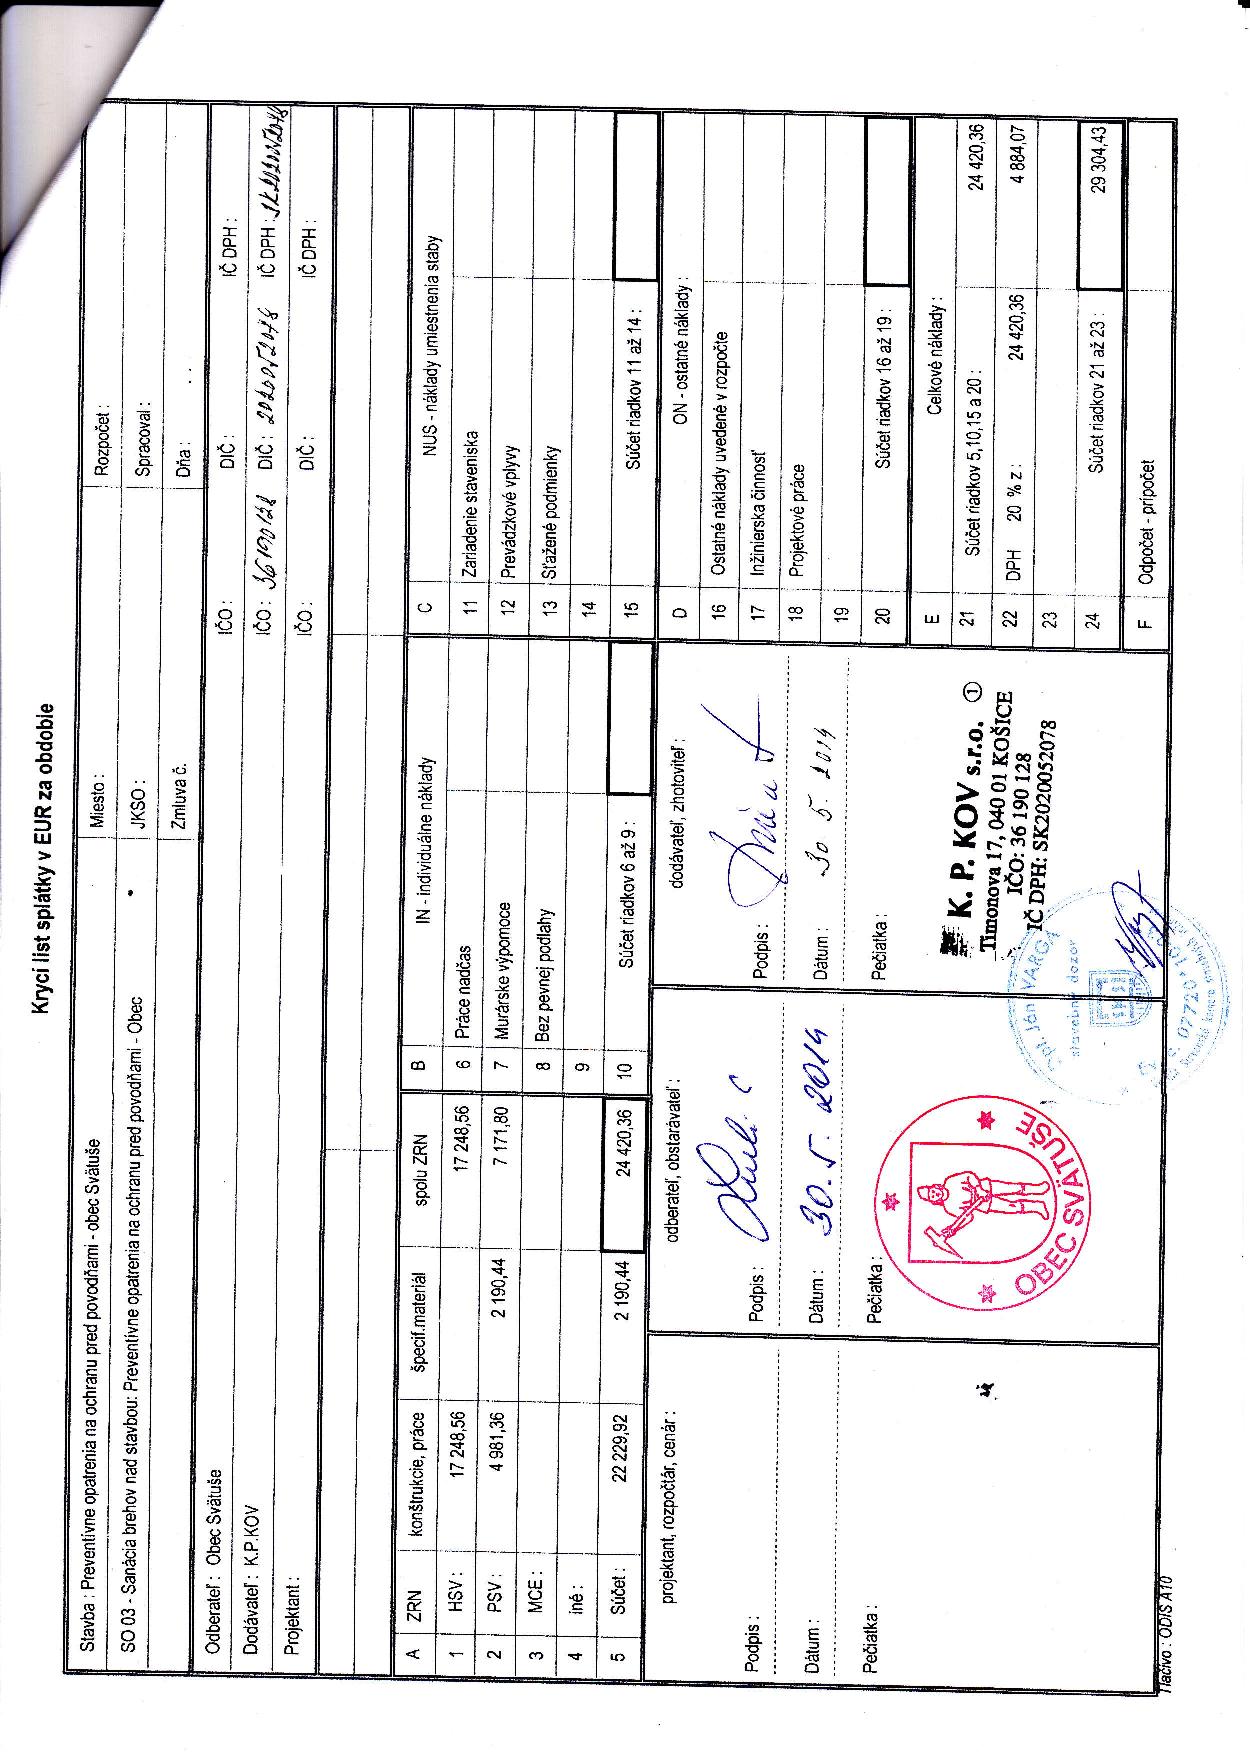 Krycí list splátky v EUR za obdobie
Stavba : Preventívne opatrenia na ochranu pred povodňami - obec Svätuše Miesto : Rozpočet :
SO 03 - Sanácia brehov nad stavbou: Preventívne opatrenia na ochranu pred povodňami - Obec JKSO : Spracoval :
Zmluva č. Dňa : . .
Odberateľ : Obec Svätuše IČO : DIČ : IČ DPH :
Dodávateľ : K.P.KOV IČO : 36190128 DIČ : 2020052078 IČ DPH : SK2020052078
Projektant : IČO : DIČ : IČ DPH :
A ZRN konštrukcie, práce špecif.materiál spolu ZRN
1 HSV : 17 248,56 17 248,56
2 PSV : 4 981,36 2 190,44 7 171,80
3 MCE :
4 iné :
5 Súčet : 22 229,92 2 190,44 24 420,36
B IN - individuálne náklady
6 Práce nadčas
7 Murárske výpomoce
8 Bez pevnej podlahy
9
10 Súčet riadkov 6 až 9 :
C NUS - náklady umiestnenia staby
11 Zariadenie staveniska
12 Prevádzkové vplyvy
13 Sťažené podmienky
14
15 Súčet riadkov 11 až 14 :
projektant, rozpočtár, cenár :
Podpis :
Dátum :
Pečiatka :
odberateľ, obstarávateľ :
Podpis :
Dátum : 30. 5. 2014
Pečiatka :
OBEC SVÄTUŠE
dodávateľ, zhotoviteľ :
Podpis :
Dátum : 30 5. 2014
Pečiatka :
K. P. KOV s.r.o. ①
Timonova 17, 040 01 KOŠICE
IČO: 36 190 128
IČ DPH: SK2020052078
Ján VARGA
stavebný dozor
D ON - ostatné náklady :
16 Ostatné náklady uvedené v rozpočte
17 Inžinierska činnosť
18 Projektové práce
19
20 Súčet riadkov 16 až 19 :
E Celkové náklady :
21 Súčet riadkov 5,10,15 a 20 : 24 420,36
22 DPH 20 % z : 24 420,36 4 884,07
23
24 Súčet riadkov 21 až 23 : 29 304,43
F Odpočet - prípočet
Tlačivo : ODIS A10